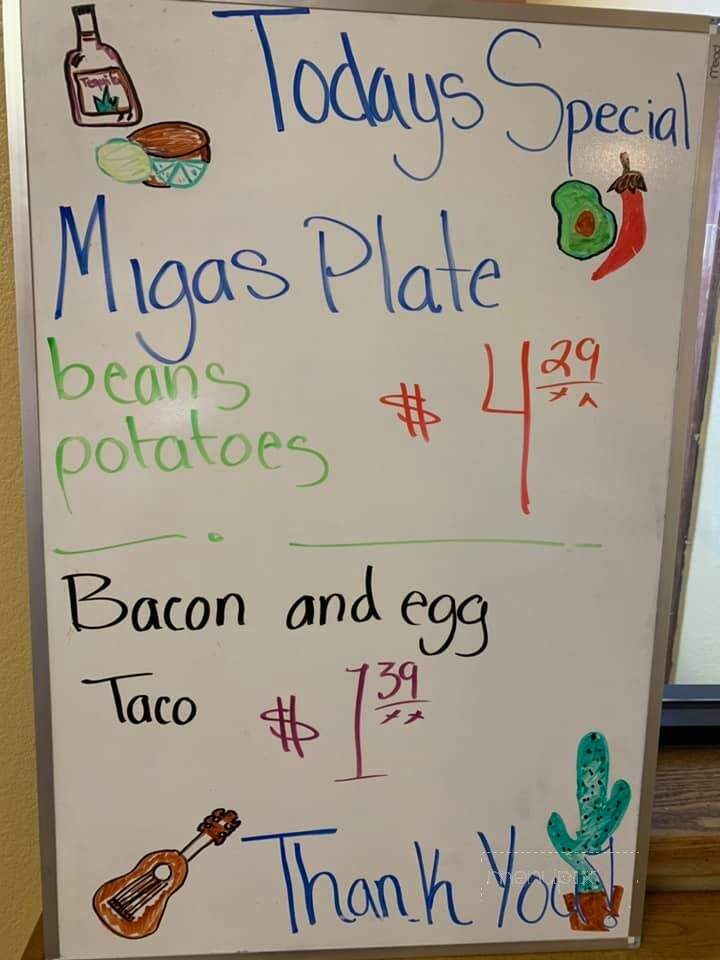 Tequila
Todays Special
Migas Plate
beans
potatoes
$ 4 29
xx
Bacon and egg
Taco
$ 1 39
xx
Thank You!
menupix